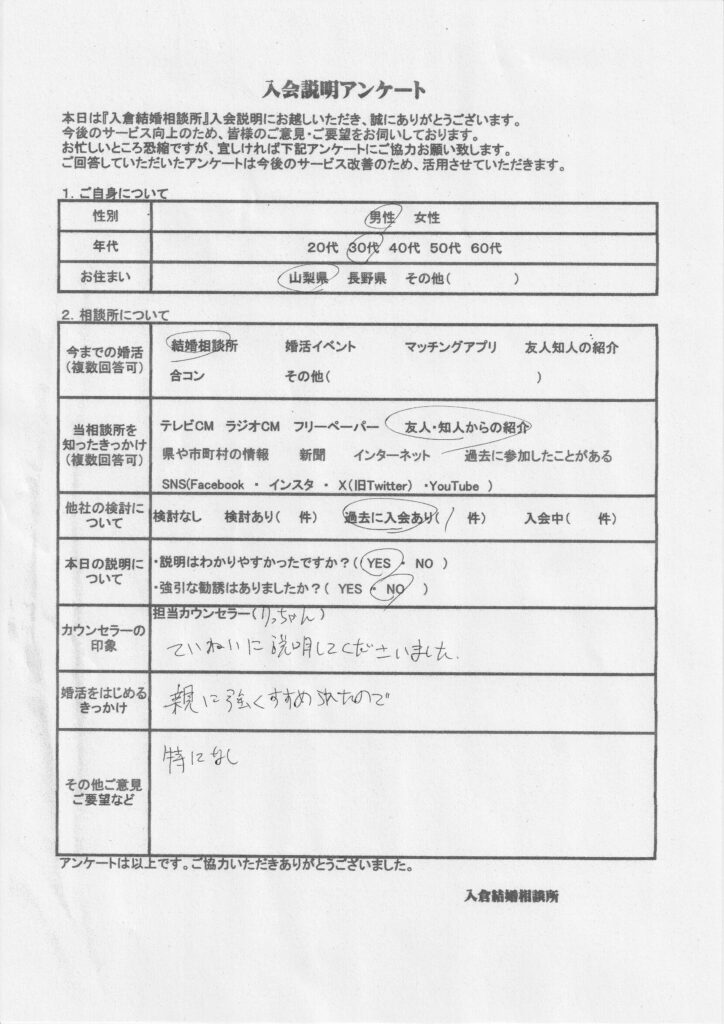 入会説明アンケート
本日は『入倉結婚相談所』入会説明にお越しいただき、誠にありがとうございます。
今後のサービス向上のため、皆様のご意見・ご要望をお伺いしております。
お忙しいところ恐縮ですが、宜しければ下記アンケートにご協力お願い致します。
ご回答していただいたアンケートは今後のサービス改善のため、活用させていただきます。
1. ご自身について
性別 男性 女性
年代 20代 30代 40代 50代 60代
お住まい 山梨県 長野県 その他( )
2. 相談所について
今までの婚活
(複数回答可)
結婚相談所 婚活イベント マッチングアプリ 友人知人の紹介
合コン その他( )
当相談所を
知ったきっかけ
(複数回答可)
テレビCM ラジオCM フリーペーパー 友人・知人からの紹介
県や市町村の情報 新聞 インターネット 過去に参加したことがある
SNS(Facebook ・ インスタ ・ X(旧Twitter) ・YouTube )
他社の検討に
ついて
検討なし 検討あり( 件) 過去に入会あり( 1 件) 入会中( 件)
本日の説明に
ついて
・説明はわかりやすかったですか?( YES ・ NO )
・強引な勧誘はありましたか?( YES ・ NO )
カウンセラーの
印象
担当カウンセラー(りっちゃん)
ていねいに説明してくださいました.
婚活をはじめる
きっかけ
親に強くすすめられたので
その他ご意見
ご要望など
特になし
アンケートは以上です。ご協力いただきありがとうございました。
入倉結婚相談所